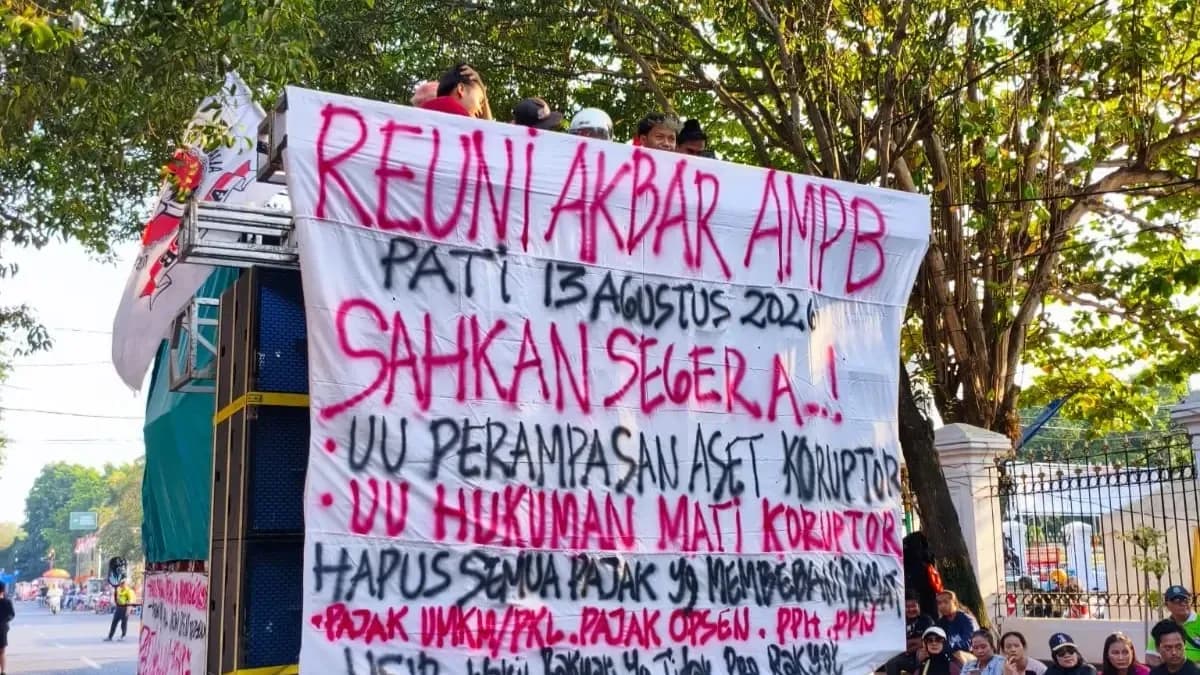 REUNI AKBAR AMPB
PATI 13 AGUSTUS 2026
SAHKAN SEGERA..!
• UU PERAMPASAN ASET KORUPTOR
• UU HUKUMAN MATI KORUPTOR
HAPUS SEMUA PAJAK yg MEMBEBANI RAKYAT
• PAJAK UMKM/PKL. PAJAK OPSEN. PPH. PPN
Wakil Rakyat yg Tidak Pro Rakyat